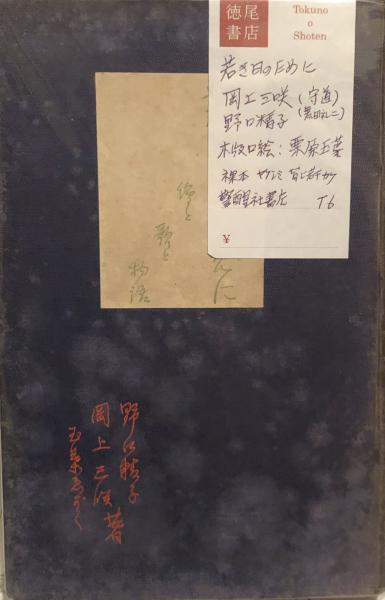 徳尾
書店
Tokuno
o
Shoten
若き日のために
岡上三咲(守道)
野口精子(黒田礼二)
木版口絵:栗原玉葉
裸本 ヤケシミ
警醒社書店 T6
¥
に
絵と
歌と
物語
野口精子
岡上三咲著
玉葉ゑがく